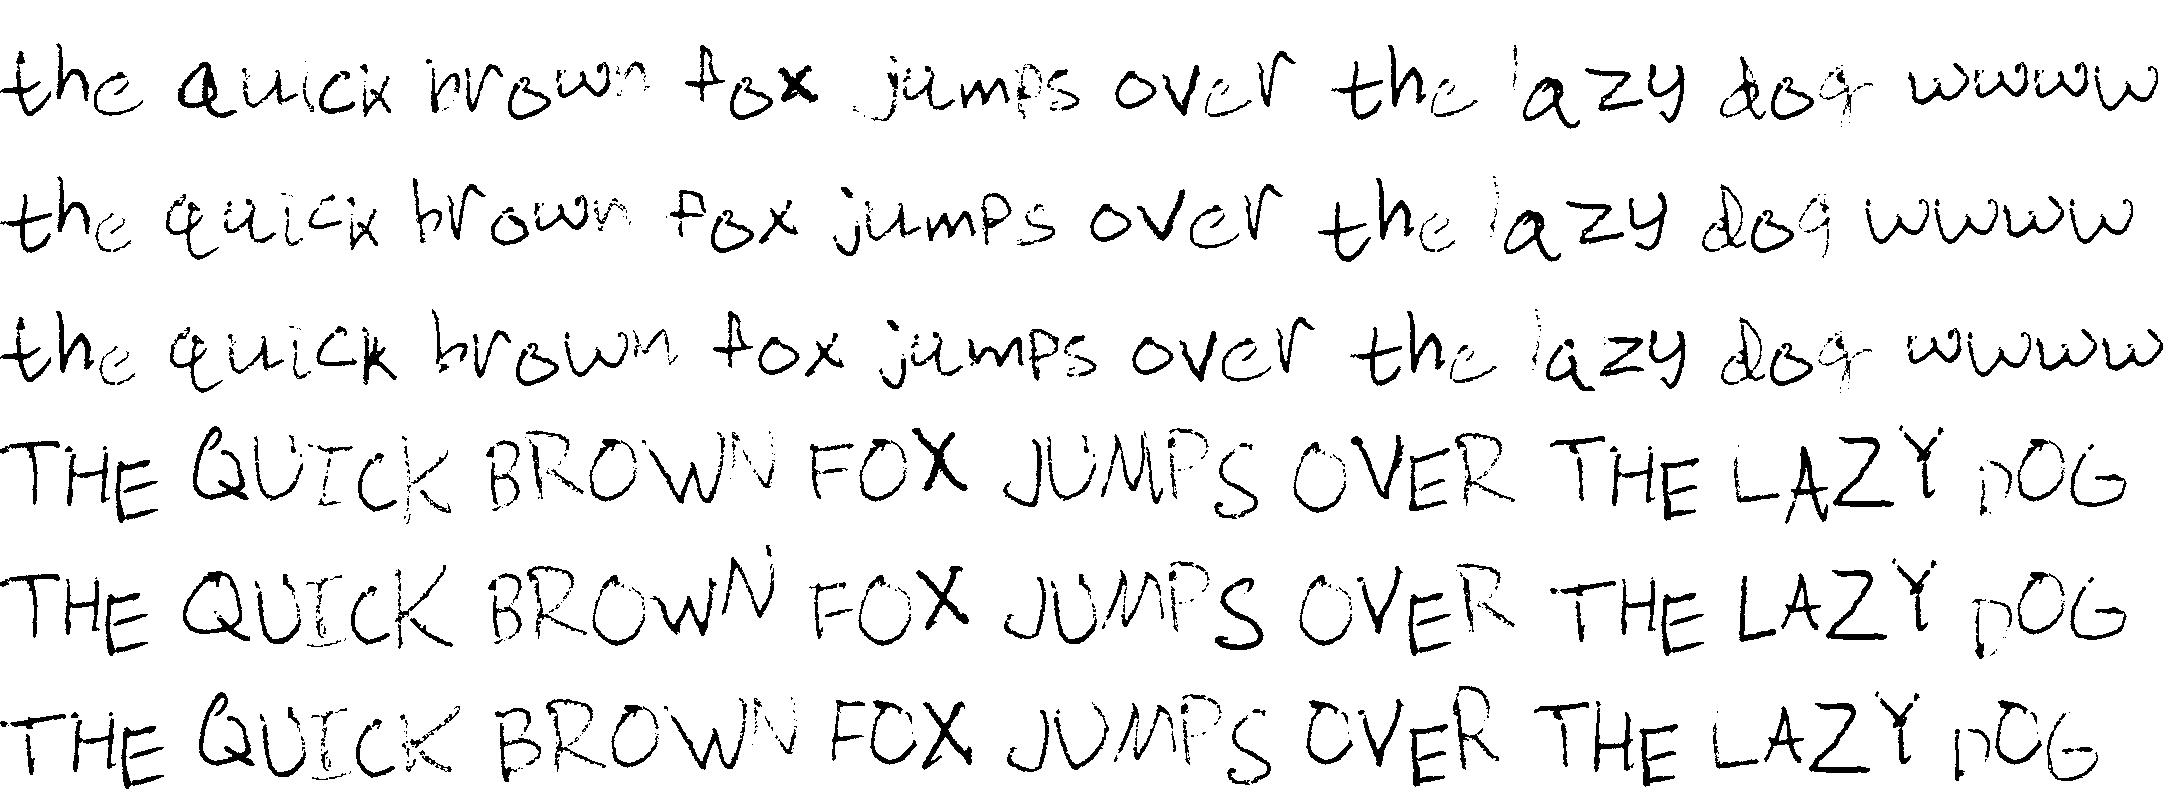 the quick brown fox jumps over the lazy dog wwww
the quick brown fox jumps over the lazy dog wwww
the quick brown fox jumps over the lazy dog wwww
THE QUICK BROWN FOX JUMPS OVER THE LAZY DOG
THE QUICK BROWN FOX JUMPS OVER THE LAZY DOG
THE QUICK BROWN FOX JUMPS OVER THE LAZY DOG